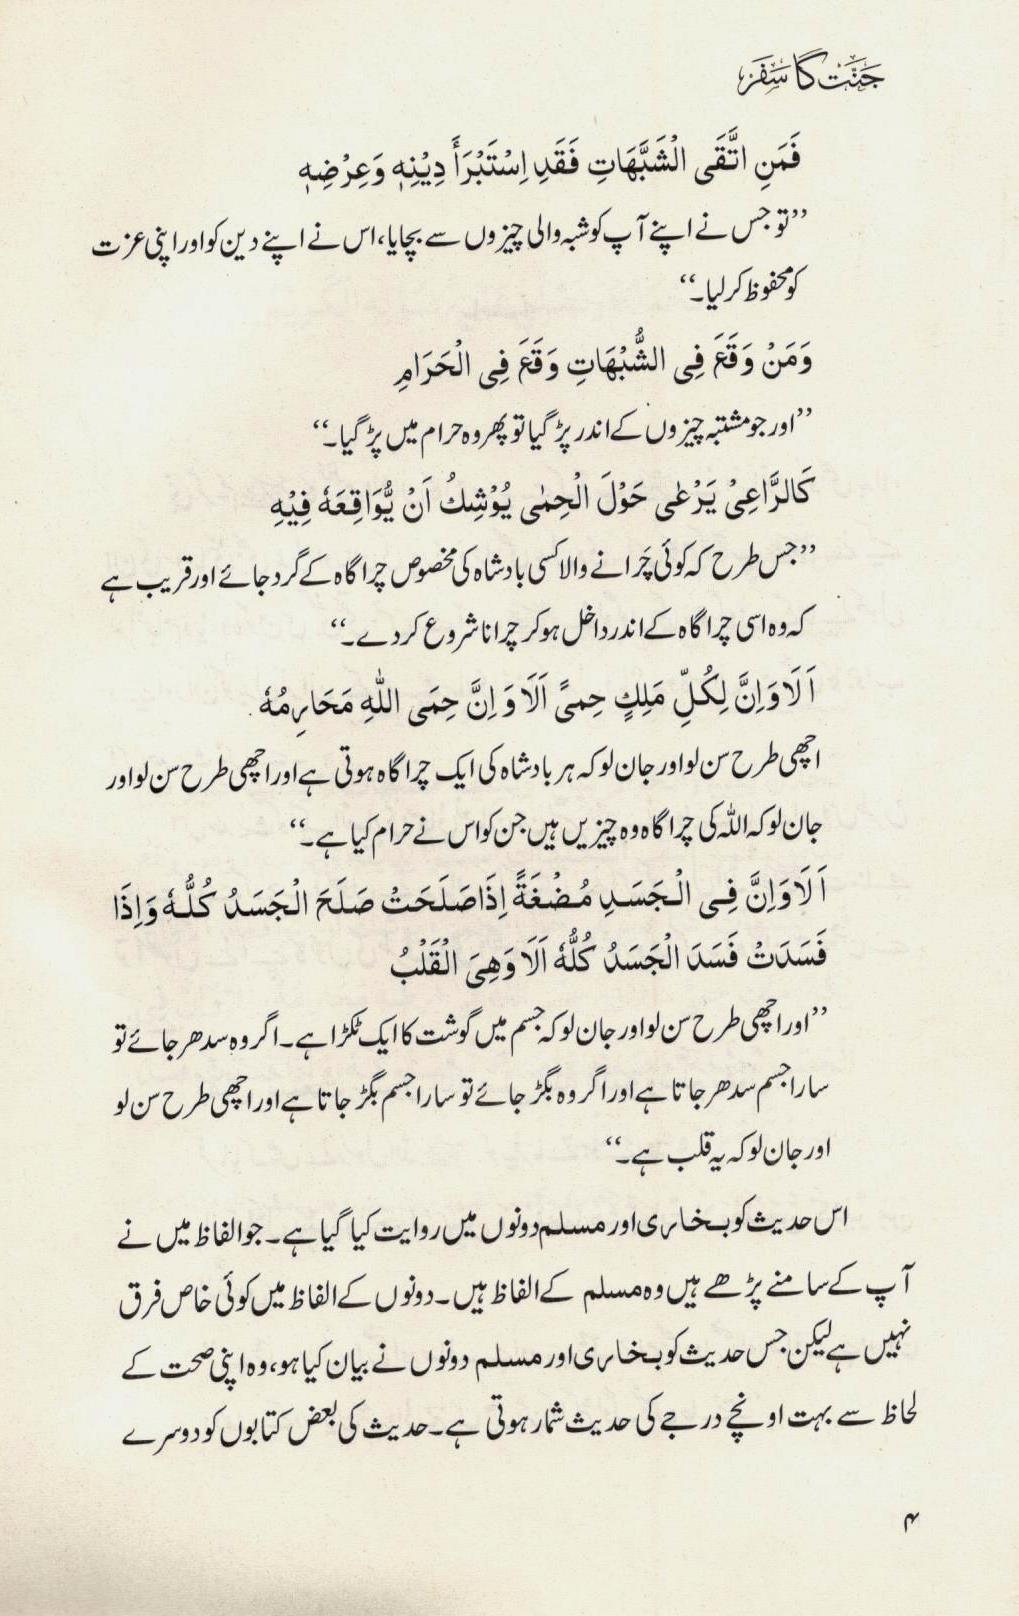 جَنَّت کا سَفَر
فَمَنِ اتَّقَى الْشَبَّهَاتِ فَقَدِ اِسْتَبْرَأَ دِيْنِهٖ وَعِرْضِهٖ
’’تو جس نے اپنے آپ کو شبہ والی چیزوں سے بچایا، اس نے اپنے دین کو اور اپنی عزت
کو محفوظ کر لیا۔‘‘
وَمَنْ وَقَعَ فِى الشُّبْهَاتِ وَقَعَ فِى الْحَرَامِ
’’اور جو مشتبہ چیزوں کے اندر پڑ گیا تو پھر وہ حرام میں پڑ گیا۔‘‘
كَالرَّاعِىْ يَرْعٰى حَوْلَ الْحِمٰى يُوْشِكُ اَنْ يُّوَاقِعَهٗ فِيْهِ
’’جس طرح کہ کوئی چَرانے والا کسی بادشاہ کی مخصوص چراگاہ کے گرد جائے اور قریب ہے
کہ وہ اسی چراگاہ کے اندر داخل ہو کر چرانا شروع کر دے۔‘‘
اَلَا وَاِنَّ لِكُلِّ مَلِكٍ حِمىً اَلَا وَ اِنَّ حِمَى اللهِ مَحَارِمُهٗ.
اچھی طرح سن لو اور جان لو کہ ہر بادشاہ کی ایک چراگاہ ہوتی ہے اور اچھی طرح سن لو اور
جان لو کہ اللہ کی چراگاہ وہ چیزیں ہیں جن کو اس نے حرام کیا ہے۔‘‘
اَلَا وَاِنَّ فِى الْجَسَدِ مُضْغَةً اِذَا صَلَحَتْ صَلَحَ الْجَسَدُ كُلُّهٗ وَ اِذَا
فَسَدَتْ فَسَدَ الْجَسَدُ كُلُّهٗ اَلَا وَهِىَ الْقَلْبُ
’’اور اچھی طرح سن لو اور جان لو کہ جسم میں گوشت کا ایک ٹکڑا ہے۔ اگر وہ سدھر جائے تو
سارا جسم سدھر جاتا ہے اور اگر وہ بگڑ جائے تو سارا جسم بگڑ جاتا ہے اور اچھی طرح سن لو
اور جان لو کہ یہ قلب ہے۔‘‘
اس حدیث کو بخاری اور مسلم دونوں میں روایت کیا گیا ہے۔ جو الفاظ میں نے
آپ کے سامنے پڑھے ہیں وہ مسلم کے الفاظ ہیں۔ دونوں کے الفاظ میں کوئی خاص فرق
نہیں ہے لیکن جس حدیث کو بخاری اور مسلم دونوں نے بیان کیا ہو، وہ اپنی صحت کے
لحاظ سے بہت اونچے درجے کی حدیث شمار ہوتی ہے۔ حدیث کی بعض کتابوں کو دوسرے
۴